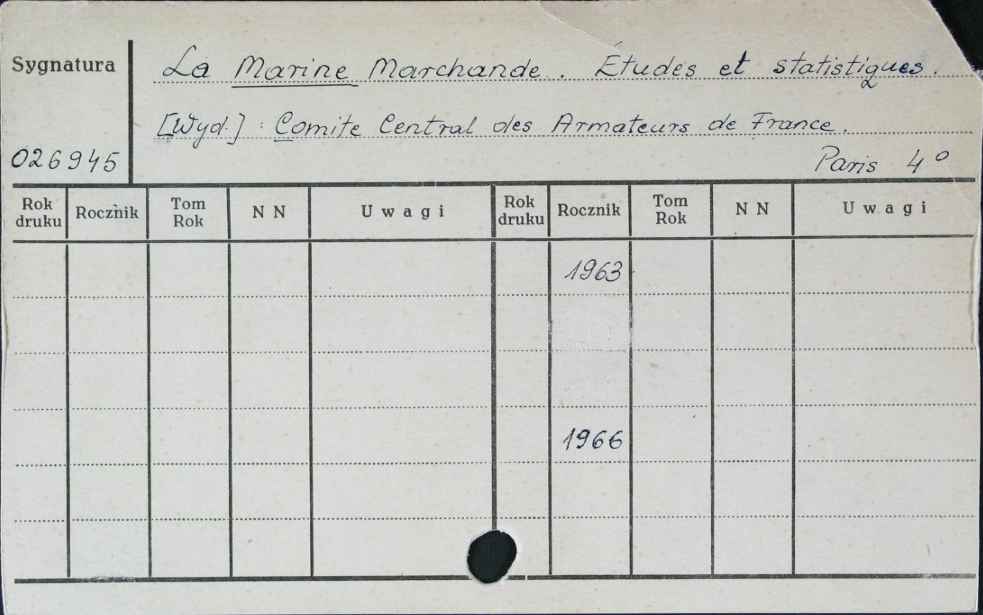 Sygnatura
La Marine Marchande. Études et statistiques.
[Wyd.]: Comite Central des Armateurs de France.
026945
Paris 4°
Rok druku Rocznik Tom Rok N N Uwagi Rok druku Rocznik Tom Rok N N Uwagi
1963
1966